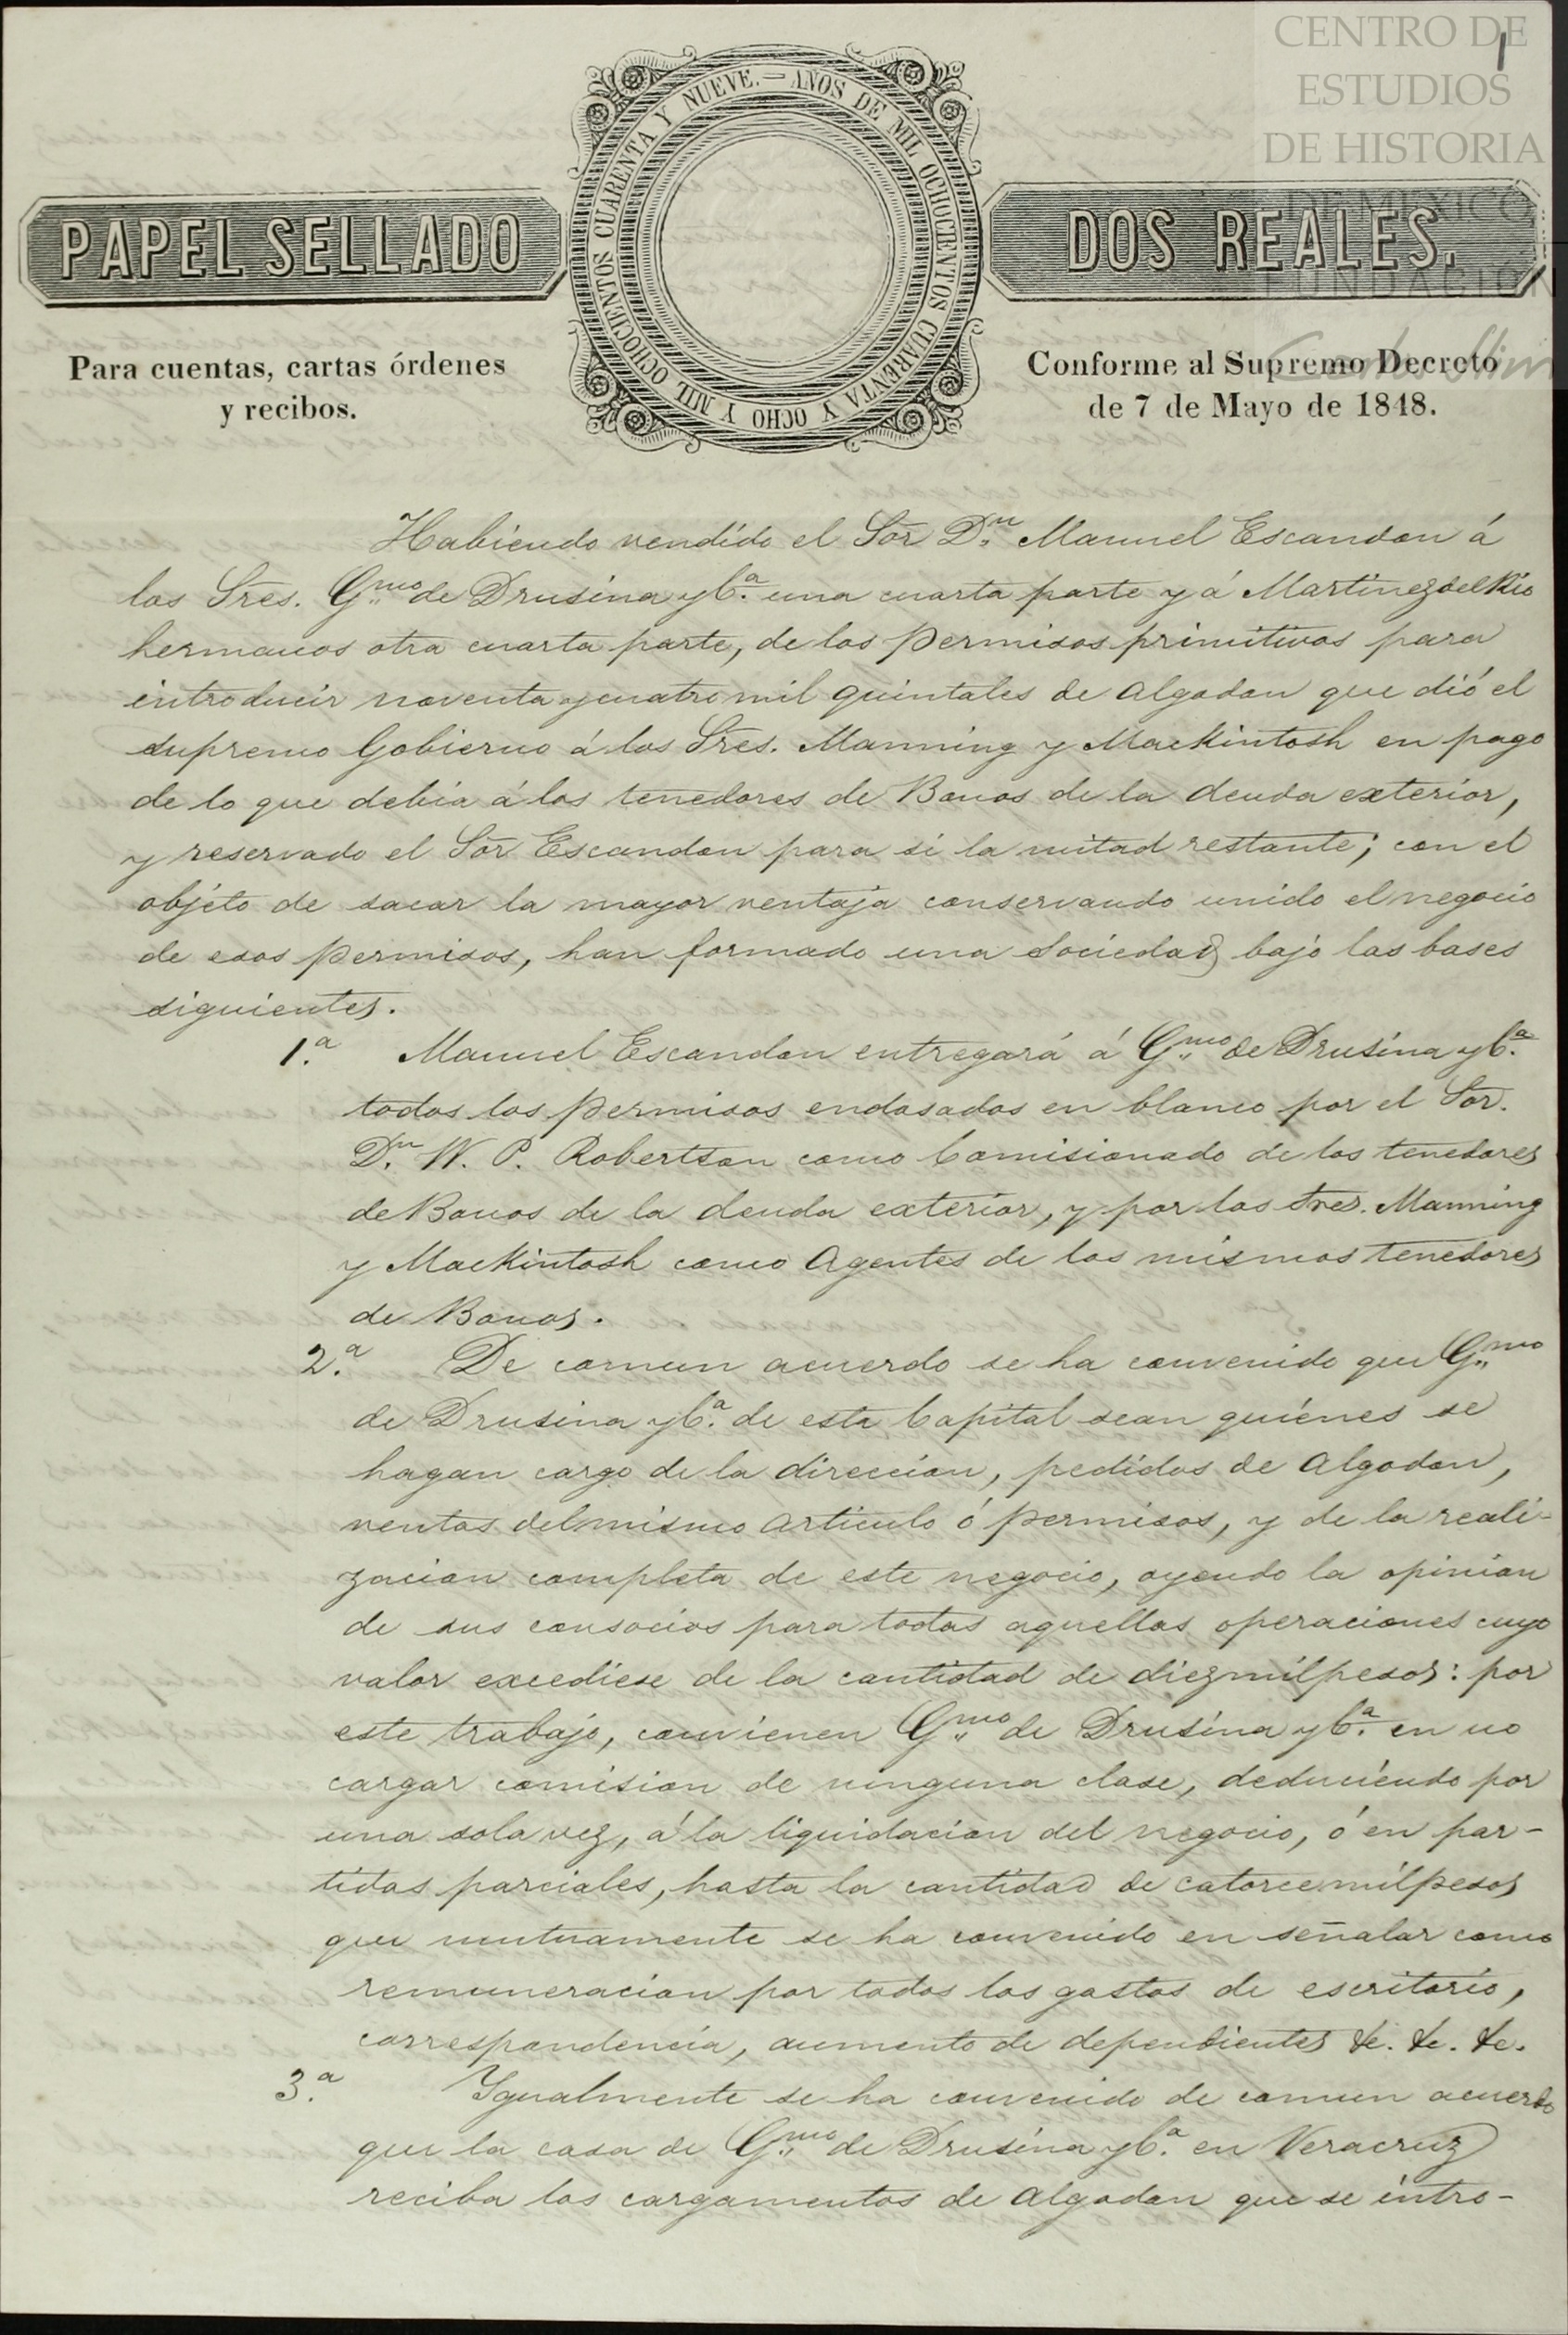 CENTRO DE
ESTUDIOS
DE HISTORIA
DE MEXICO
FUNDACIÓN
Carlos Slim
1
AÑOS DE MIL OCHOCIENTOS CUARENTA Y OCHO Y MIL OCHOCIENTOS CUARENTA Y NUEVE.—
PAPEL SELLADO
DOS REALES.
Para cuentas, cartas órdenes
y recibos.
Conforme al Supremo Decreto
de 7 de Mayo de 1848.
Habiendo vendido el Sor Dn. Manuel Escandon á
los Sres. Gmo. de Drusina y Ca. una cuarta parte y á Martinez del Rio
hermanos otra cuarta parte, de los permisos primitivos para
introducir noventa y cuatro mil quintales de Algodon que dió el
supremo Gobierno á los Sres. Manning y Mackintosh en pago
de lo que debia á los tenedores de Bonos de la deuda exterior,
y reservado el Sor Escandon para si la mitad restante; con el
objeto de sacar la mayor ventaja conservando unido el negocio
de esos permisos, han formado una Sociedad bajo las bases
siguientes.
1.a Manuel Escandon entregará á Gmo. de Drusina y Ca.
todos los permisos endosados en blanco por el Sor.
Dn. W. P. Robertson como Comisionado de los tenedores
de Bonos de la deuda exterior, y por los Sres. Manning
y Mackintosh como Agentes de los mismos tenedores
de Bonos.
2.a De comun acuerdo se ha convenido que Gmo.
de Drusina y Ca. de esta Capital sean quiénes se
hagan cargo de la direccion, pedidos de Algodon,
ventas del mismo articulo ó permisos, y de la reali-
zacion completa de este negocio, oyendo la opinion
de sus consocios para todas aquellas operaciones cuyo
valor excediese de la cantidad de diez mil pesos: por
este trabajo, convienen Gmo. de Drusina y Ca. en no
cargar comision de ninguna clase, deduciendo por
una sola vez, á la liquidacion del negocio, ó en par-
tidas parciales, hasta la cantidad de catorce mil pesos
que mutuamente se ha convenido en señalar como
remuneracion por todos los gastos de escritorio,
correspondencia, aumento de dependientes &c. &c. &c.
3.a Ygualmente se ha convenido de comun acuerdo
que la casa de Gmo. de Drusina y Ca. en Veracruz
reciba los cargamentos de Algodon que se intro-